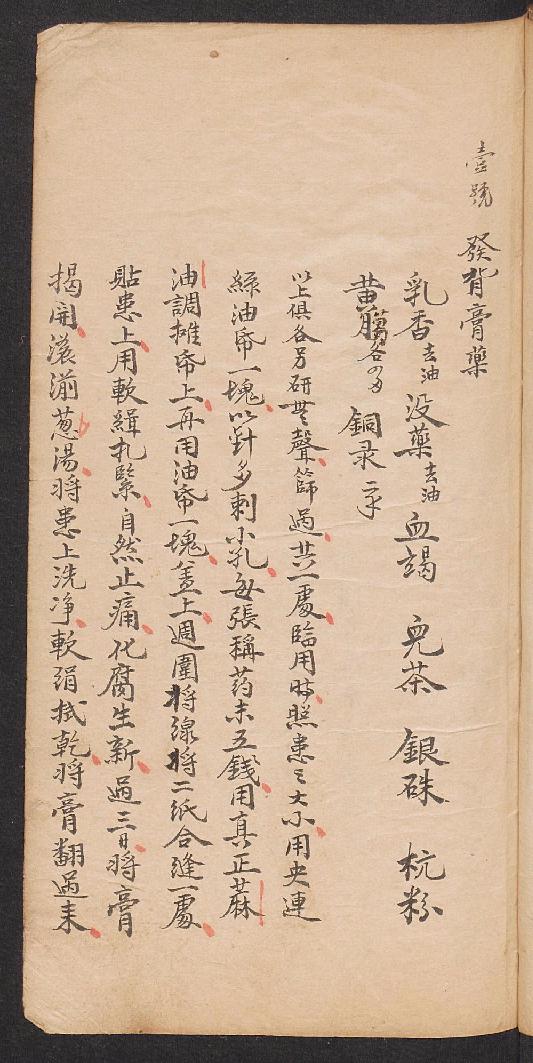 壹號
發背膏藥
乳香去油 没藥去油 血竭 兒茶 銀硃 杭粉
黄丹 各四 銅录二
以上俱各另研無聲篩過共一處臨用時照患之大小用夾連
綿油帋一塊以針多刺小孔每張稱药末五錢用真正蔴
油調摊帋上再用油帋一塊盖上週圍将線将二纸合縫一處
貼患上用軟緝扎緊自然止痛化腐生新過三日将膏
揭開滚湔葱湯将患上洗净軟絹拭乾将膏翻過来